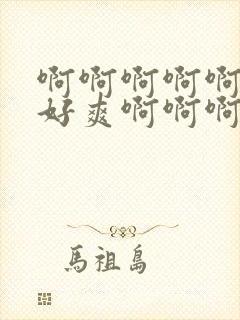 啊啊啊啊啊
好爽啊啊啊
馬祖島